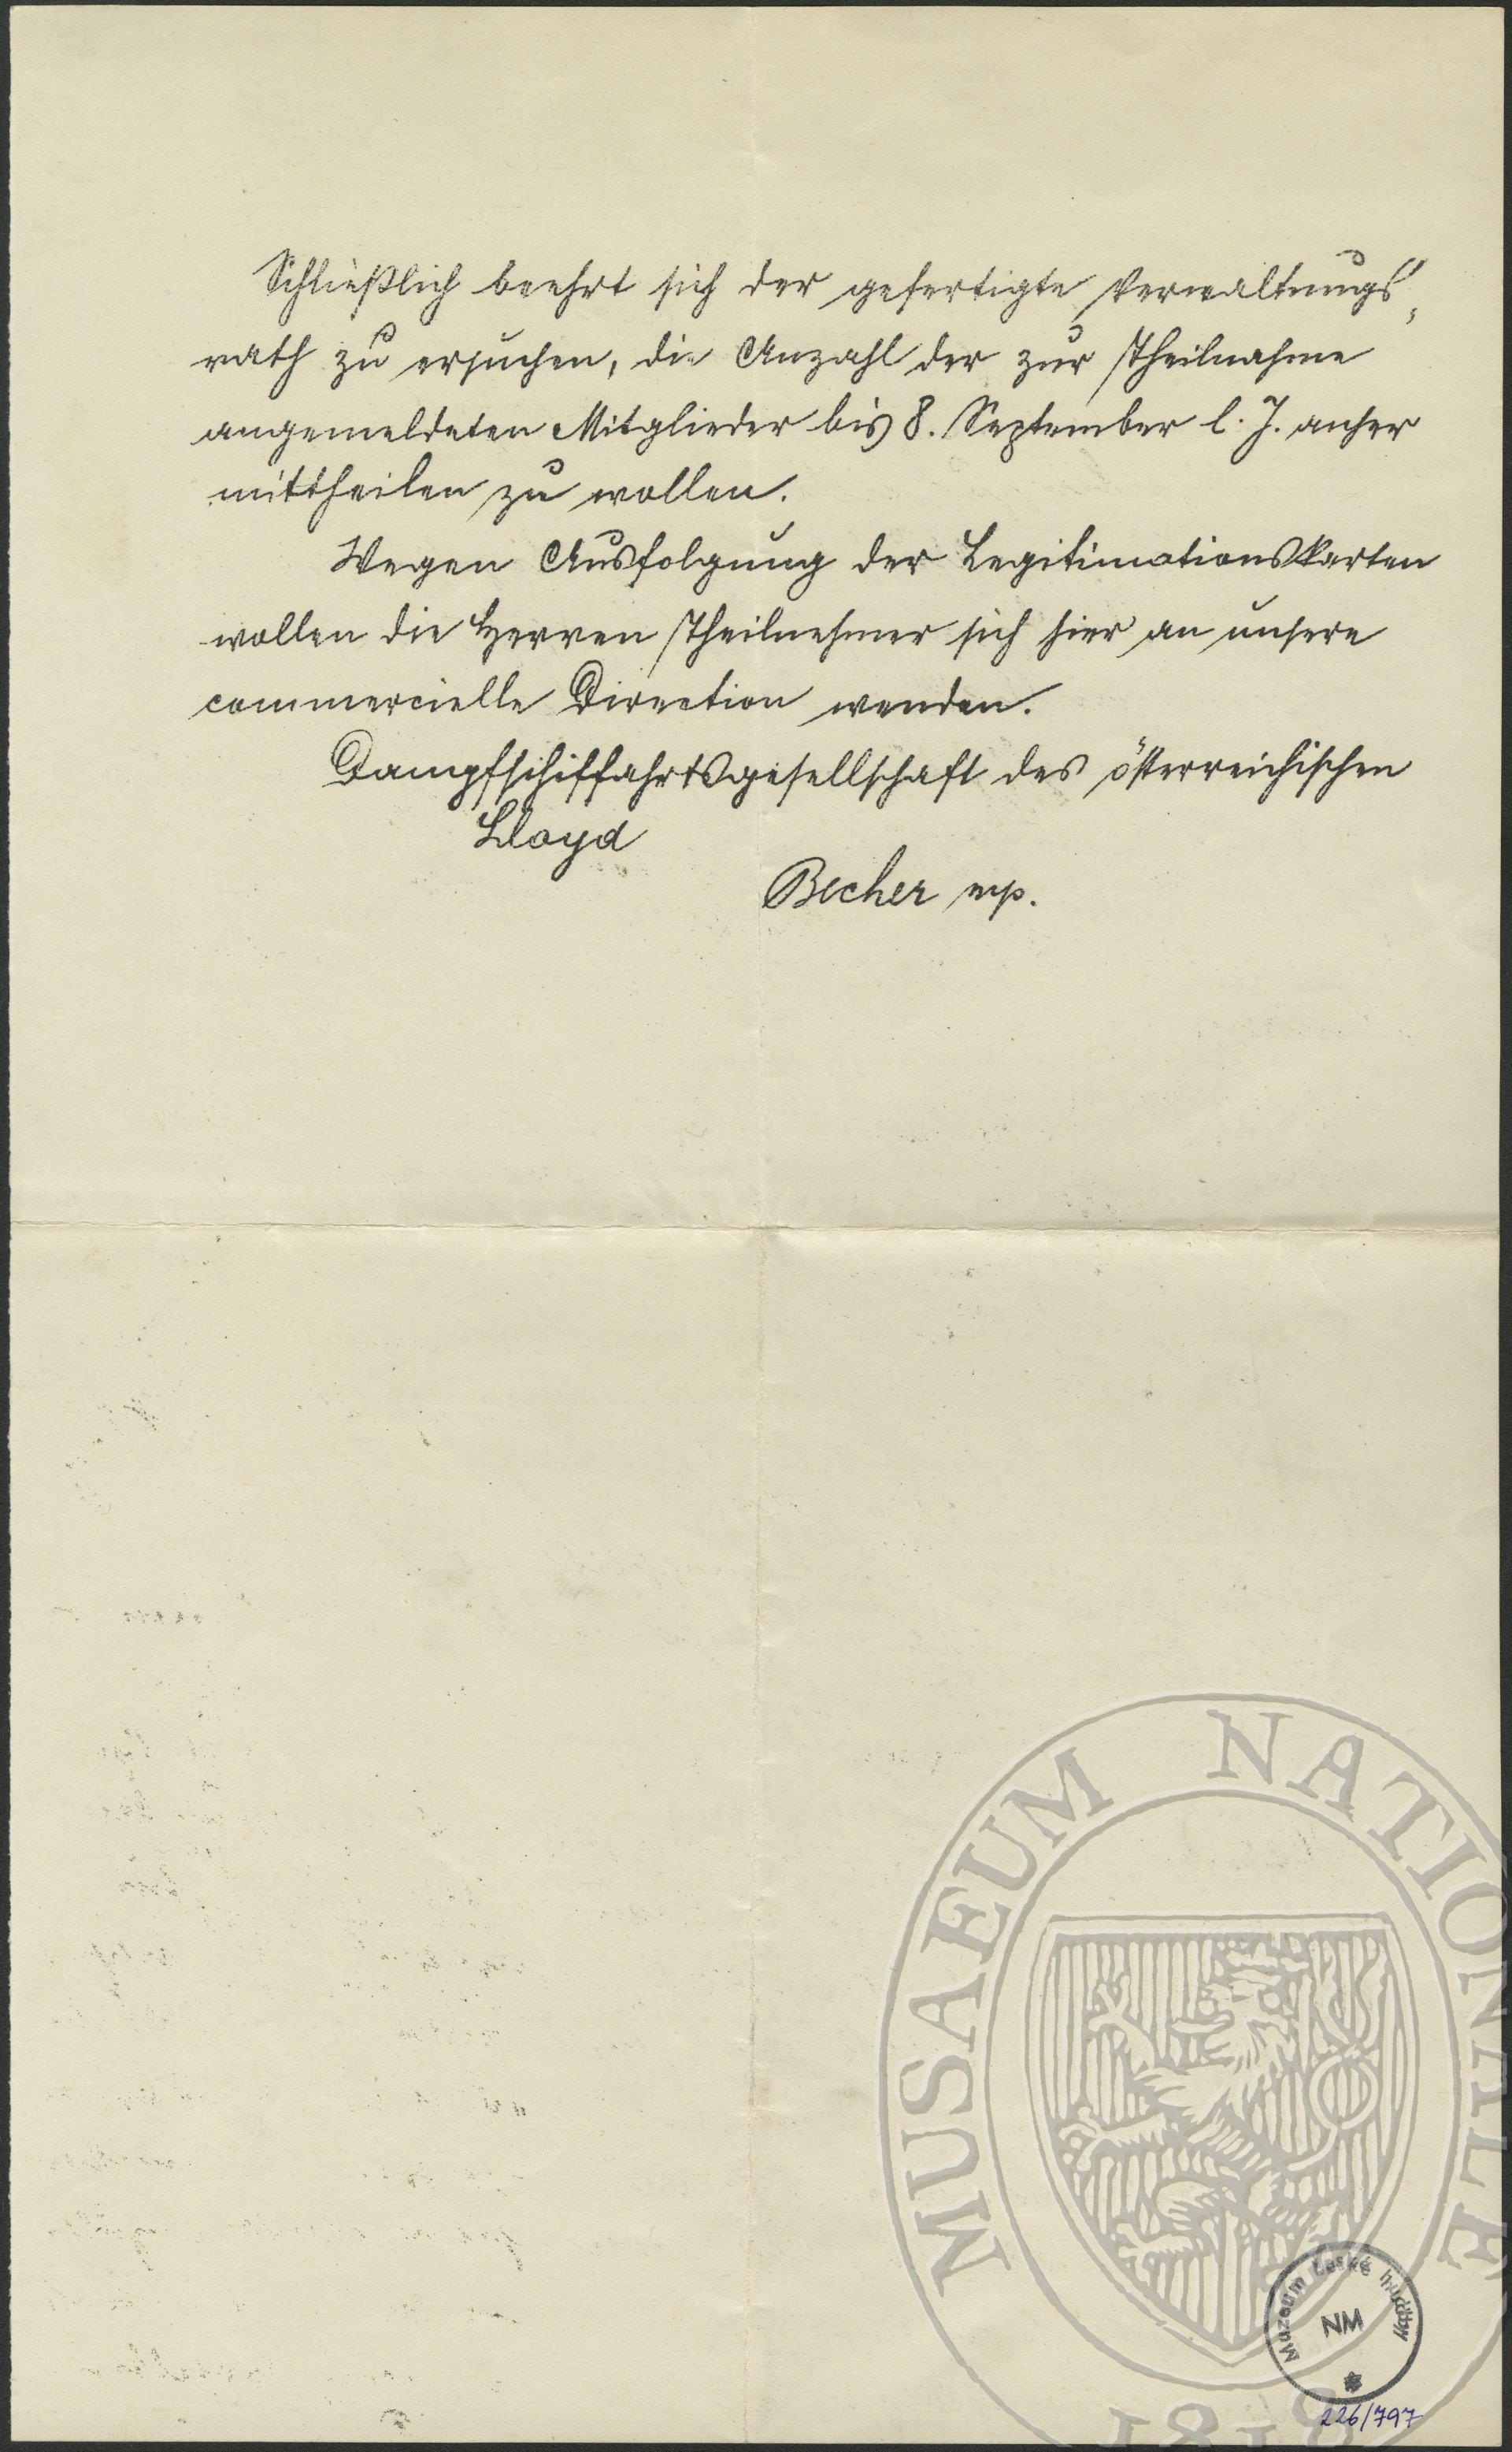 Schließlich beehrt sich der gefertigte Verwaltungs„
rath zu ersuchen, die Anzahl der zur Theilnahme
angemeldeten Mitglieder bis 8. September l. J. anher
mittheilen zu wollen.
Wegen Ausfolgung der Legitimationskarten
wollen die Herren Theilnehmer sich hier an unsere
commercielle Direction wenden.
Dampfschiffahrtsgesellschaft des österreichischen
Lloyd
Becher mp.
MUSAEUM NATIONALE
1818
Muzeum české hudby
NM
226/797